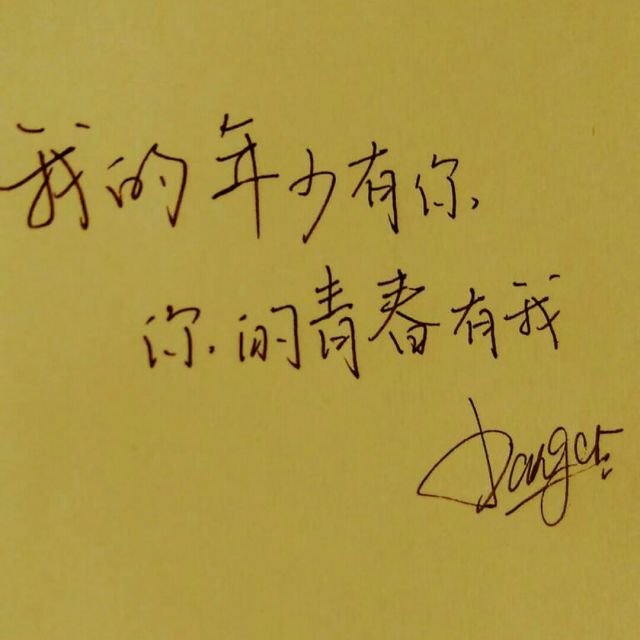 我的年少有你,
你的青春有我
Danger.